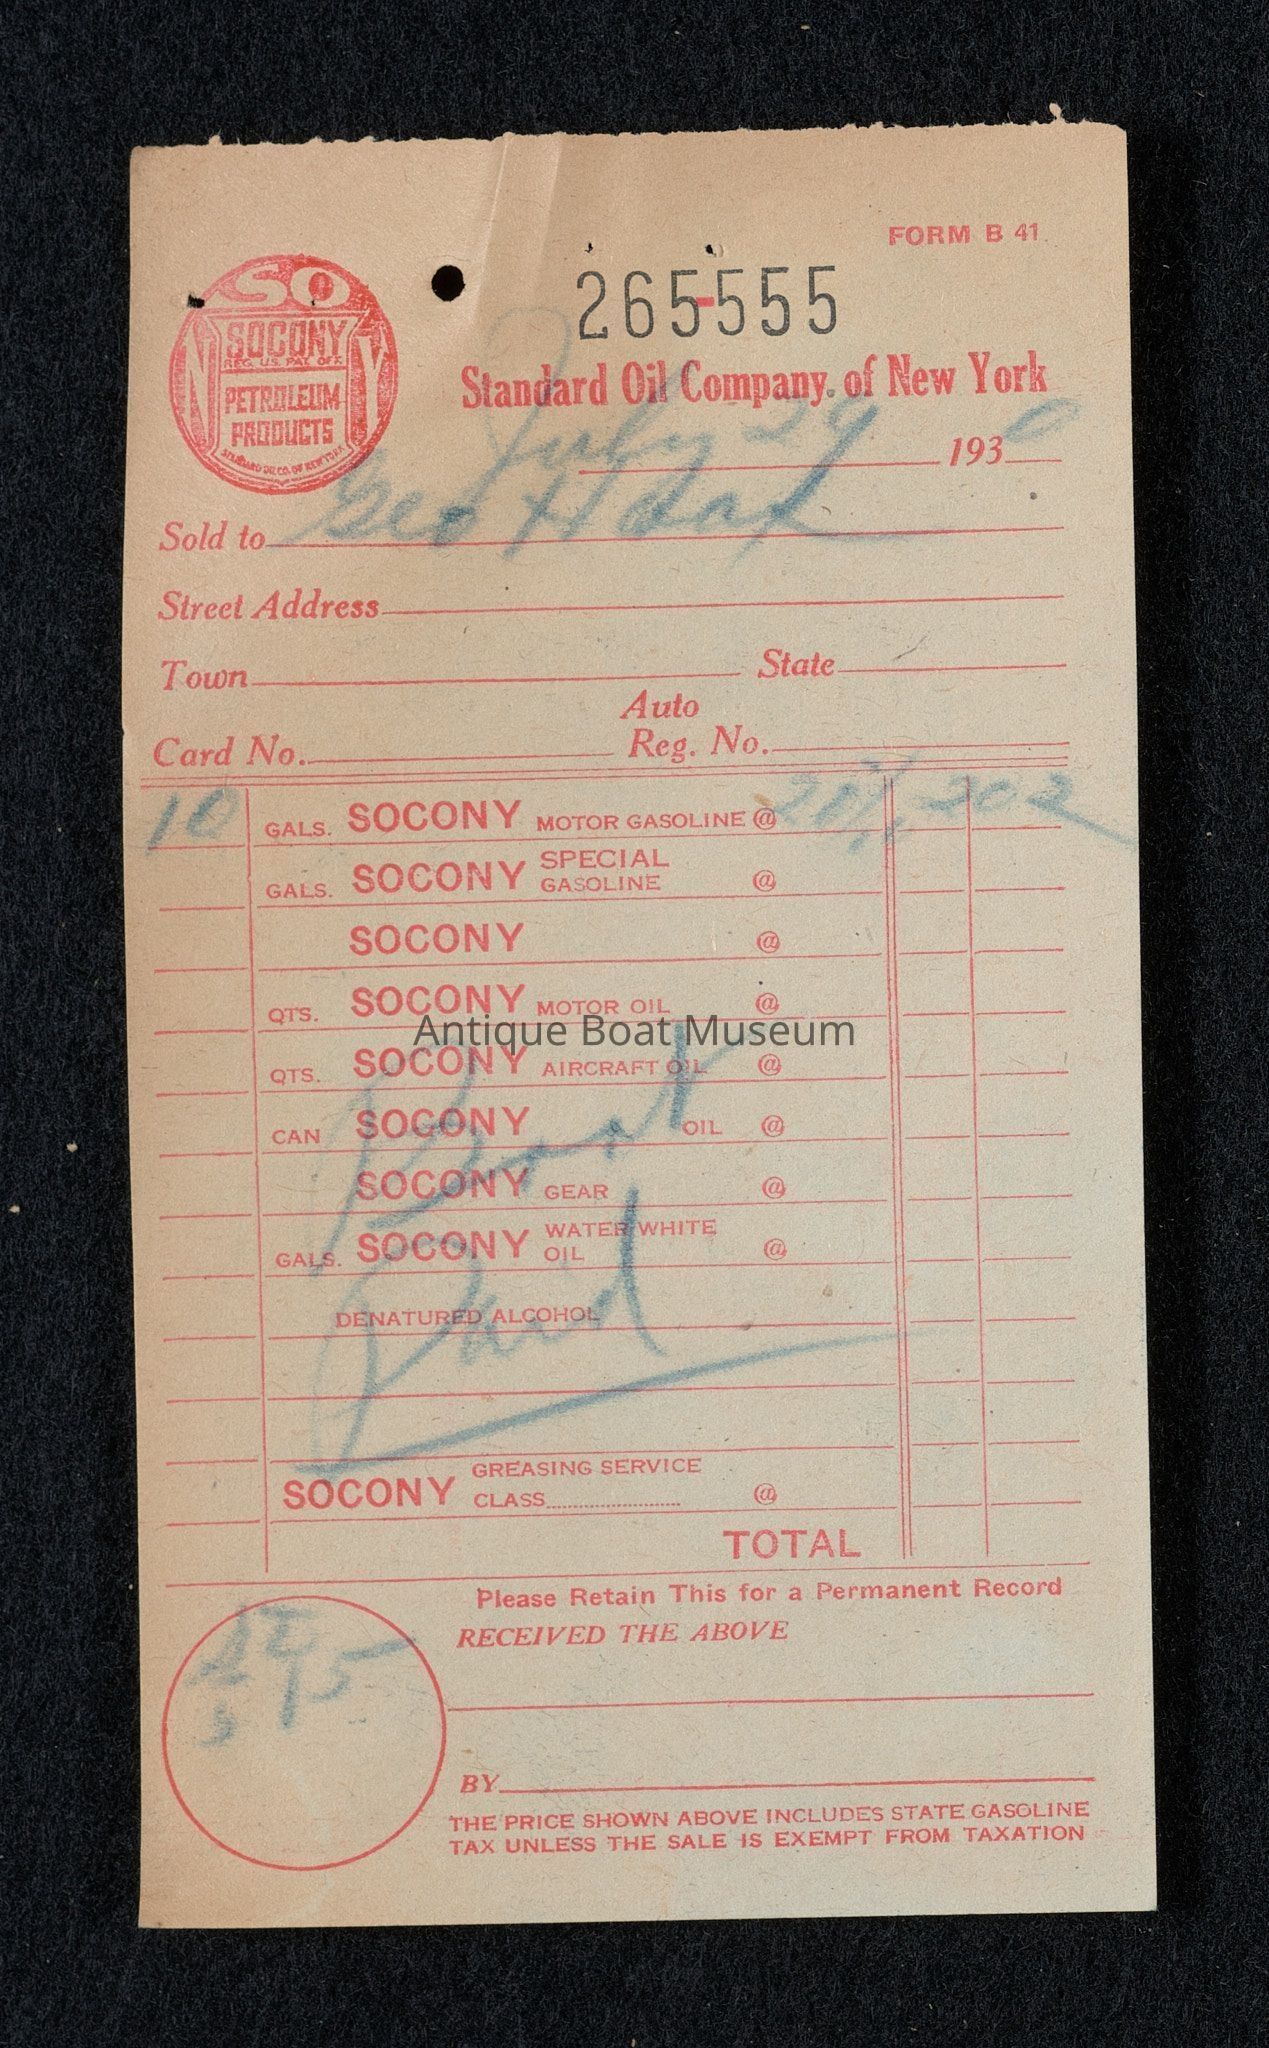 FORM B 41
265-555
SO
N Y
SOCONY
REG. U.S. PAT. OFF.
PETROLEUM
PRODUCTS
STANDARD OIL CO. OF NEW YORK
Standard Oil Company of New York
July 29 1930
Sold to Geo
Street Address
Town State
Auto
Card No. Reg. No.
10 GALS. SOCONY MOTOR GASOLINE @ 202
GALS. SOCONY SPECIAL GASOLINE @
SOCONY @
QTS. SOCONY MOTOR OIL @
Antique Boat Museum
QTS. SOCONY AIRCRAFT OIL @
CAN SOCONY OIL @
Boat
SOCONY GEAR @
GALS. SOCONY WATER WHITE OIL @
Paid
DENATURED ALCOHOL
SOCONY GREASING SERVICE
CLASS @
TOTAL
Please Retain This for a Permanent Record
RECEIVED THE ABOVE
BY
THE PRICE SHOWN ABOVE INCLUDES STATE GASOLINE
TAX UNLESS THE SALE IS EXEMPT FROM TAXATION